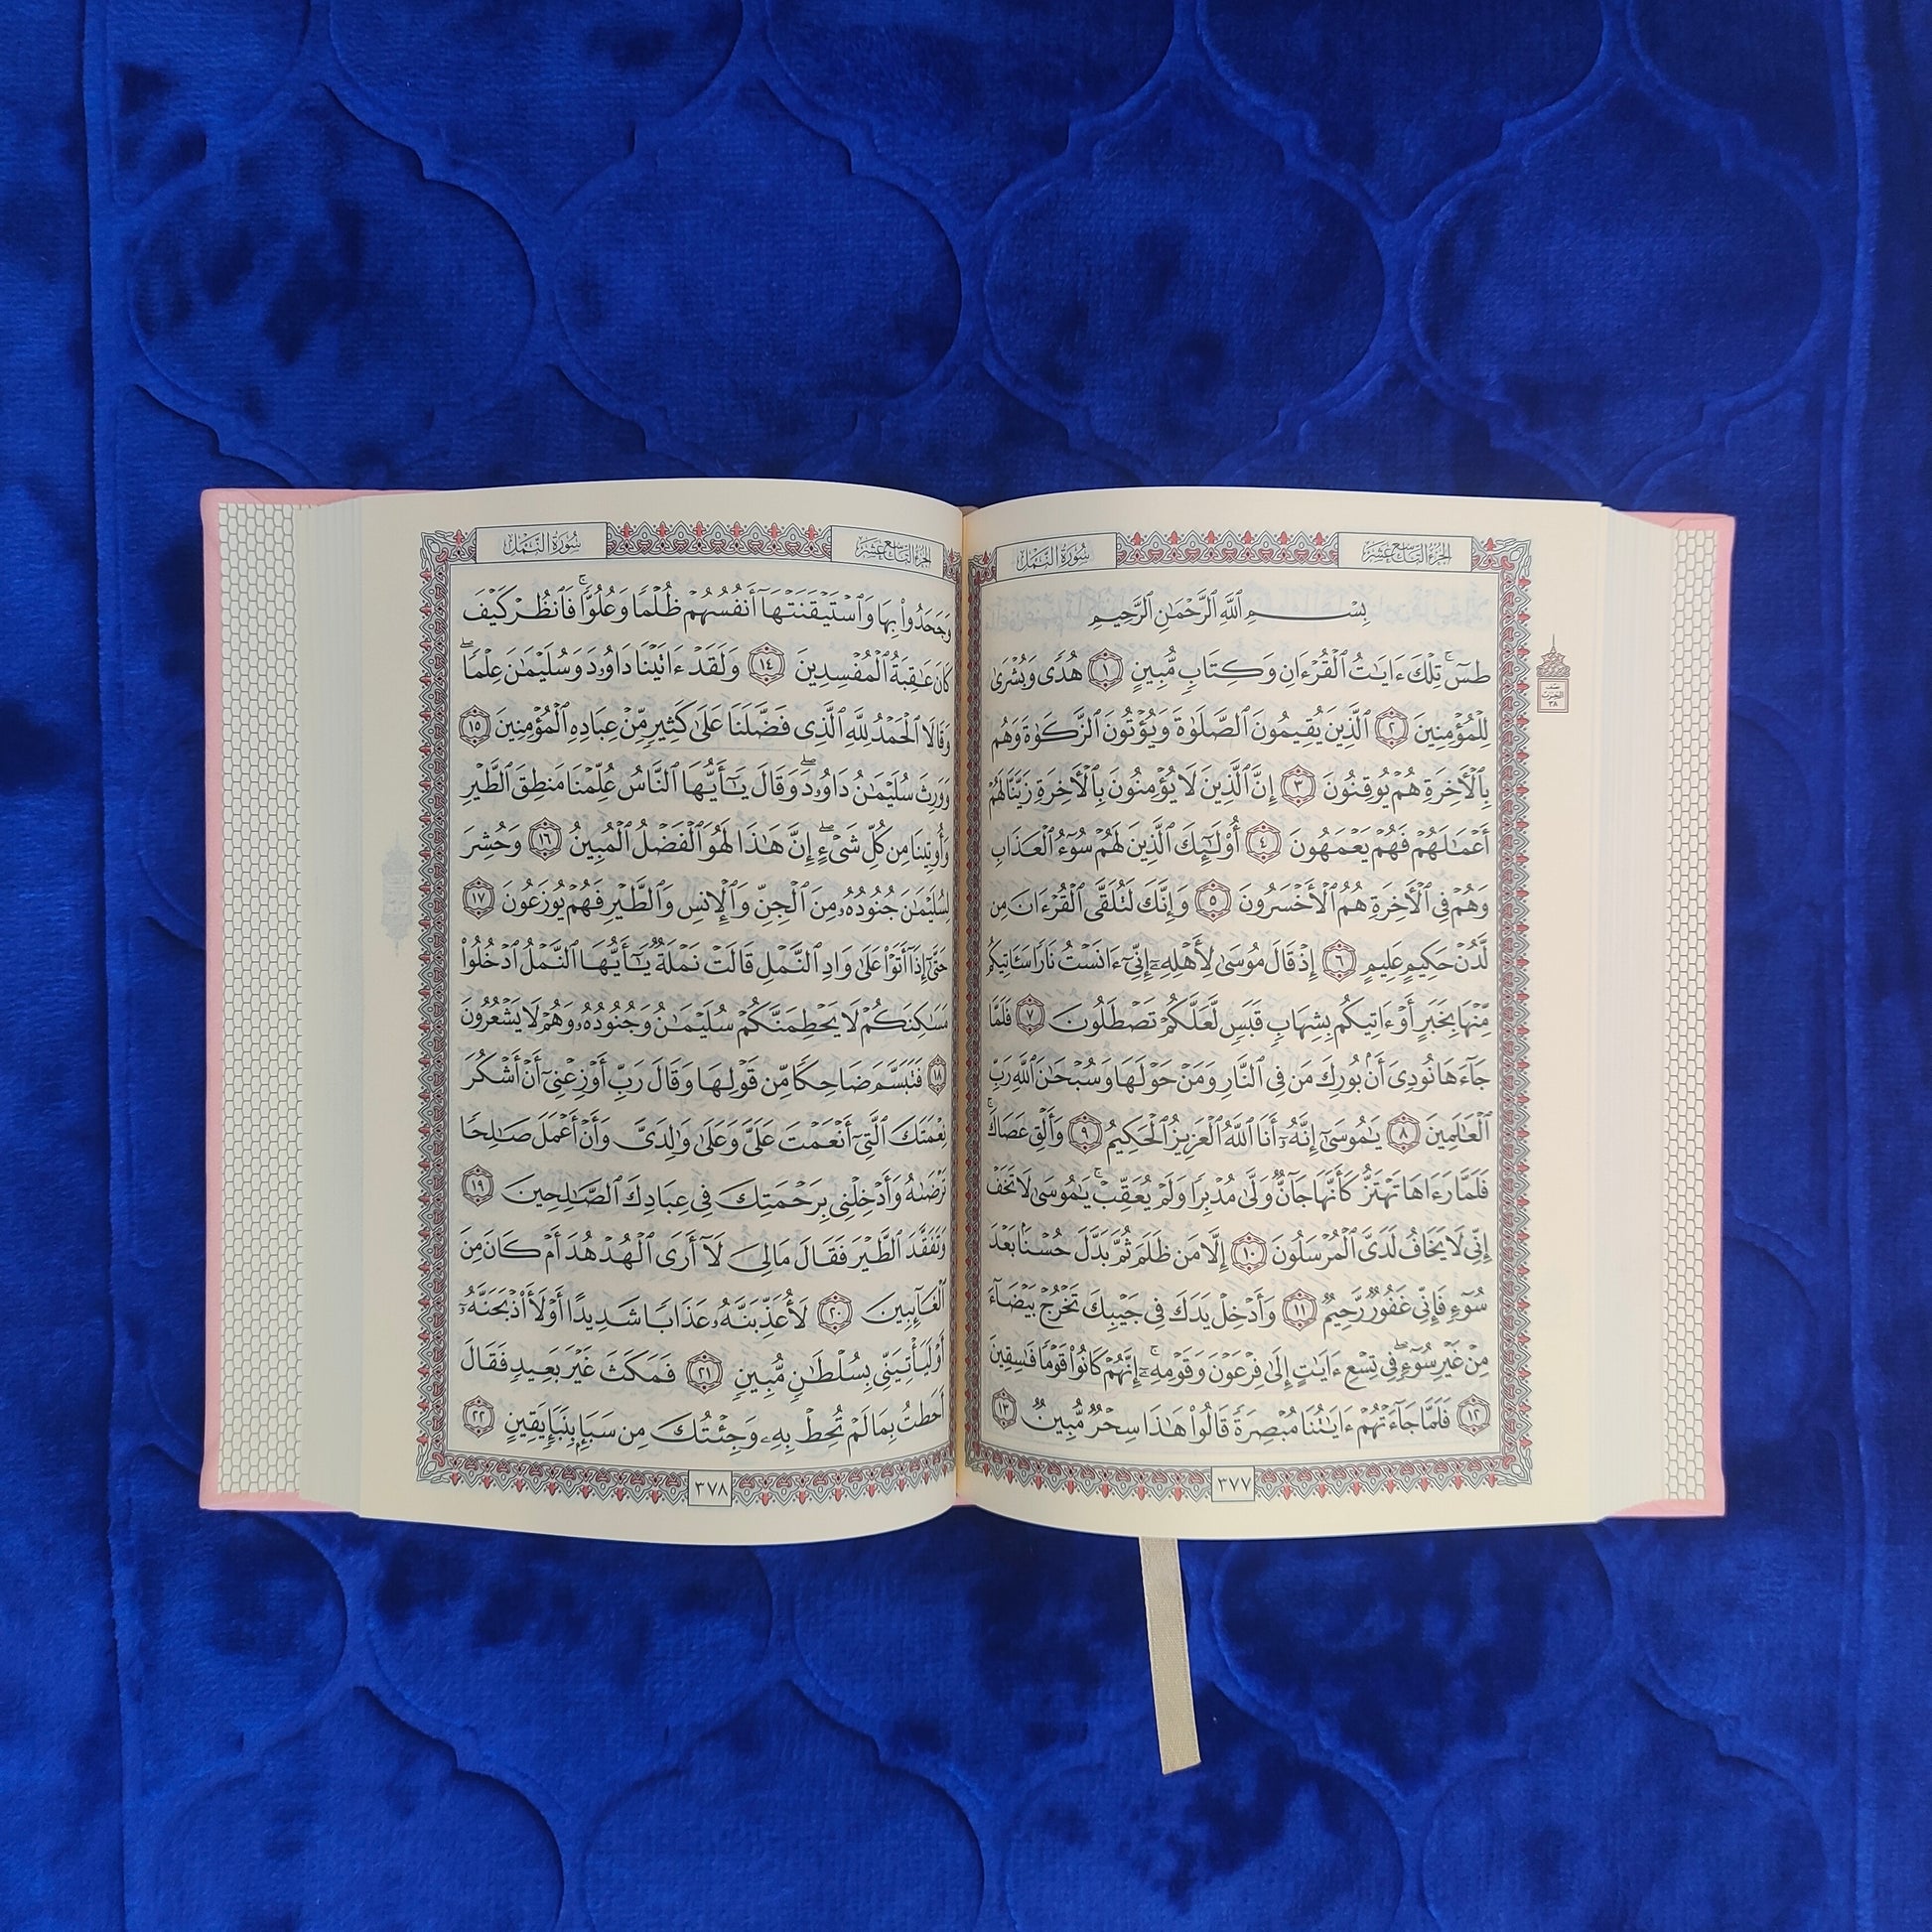 الجزء التاسع عشر
سُورَةُ النَّمۡلِ
بِسۡمِ ٱللَّهِ ٱلرَّحۡمَٰنِ ٱلرَّحِيمِ
طسٓۚ تِلۡكَ ءَايَٰتُ ٱلۡقُرۡءَانِ وَكِتَابٖ مُّبِينٍ ١ هُدٗى وَبُشۡرَىٰ
لِلۡمُؤۡمِنِينَ ٢ ٱلَّذِينَ يُقِيمُونَ ٱلصَّلَوٰةَ وَيُؤۡتُونَ ٱلزَّكَوٰةَ وَهُم
بِٱلۡأٓخِرَةِ هُمۡ يُوقِنُونَ ٣ إِنَّ ٱلَّذِينَ لَا يُؤۡمِنُونَ بِٱلۡأٓخِرَةِ زَيَّنَّا لَهُمۡ
أَعۡمَٰلَهُمۡ فَهُمۡ يَعۡمَهُونَ ٤ أُوْلَٰٓئِكَ ٱلَّذِينَ لَهُمۡ سُوٓءُ ٱلۡعَذَابِ
وَهُمۡ فِي ٱلۡأٓخِرَةِ هُمُ ٱلۡأَخۡسَرُونَ ٥ وَإِنَّكَ لَتُلَقَّى ٱلۡقُرۡءَانَ مِن
لَّدُنۡ حَكِيمٍ عَلِيمٍ ٦ إِذۡ قَالَ مُوسَىٰ لِأَهۡلِهِۦٓ إِنِّيٓ ءَانَسۡتُ نَارٗا سَـَٔاتِيكُم
مِّنۡهَا بِخَبَرٍ أَوۡ ءَاتِيكُم بِشِهَابٖ قَبَسٖ لَّعَلَّكُمۡ تَصۡطَلُونَ ٧ فَلَمَّا
جَآءَهَا نُودِيَ أَنۢ بُورِكَ مَن فِي ٱلنَّارِ وَمَنۡ حَوۡلَهَا وَسُبۡحَٰنَ ٱللَّهِ رَبِّ
ٱلۡعَٰلَمِينَ ٨ يَٰمُوسَىٰٓ إِنَّهُۥٓ أَنَا ٱللَّهُ ٱلۡعَزِيزُ ٱلۡحَكِيمُ ٩ وَأَلۡقِ عَصَاكَۚ
فَلَمَّا رَءَاهَا تَهۡتَزُّ كَأَنَّهَا جَآنّٞ وَلَّىٰ مُدۡبِرٗا وَلَمۡ يُعَقِّبۡۚ يَٰمُوسَىٰ لَا تَخَفۡ
إِنِّي لَا يَخَافُ لَدَيَّ ٱلۡمُرۡسَلُونَ ١٠ إِلَّا مَن ظَلَمَ ثُمَّ بَدَّلَ حُسۡنَۢا بَعۡدَ
سُوٓءٖ فَإِنِّي غَفُورٞ رَّحِيمٞ ١١ وَأَدۡخِلۡ يَدَكَ فِي جَيۡبِكَ تَخۡرُجۡ بَيۡضَآءَ
مِنۡ غَيۡرِ سُوٓءٖۖ فِي تِسۡعِ ءَايَٰتٍ إِلَىٰ فِرۡعَوۡنَ وَقَوۡمِهِۦٓۚ إِنَّهُمۡ كَانُواْ قَوۡمٗا فَٰسِقِينَ
١٢ فَلَمَّا جَآءَتۡهُمۡ ءَايَٰتُنَا مُبۡصِرَةٗ قَالُواْ هَٰذَا سِحۡرٞ مُّبِينٞ ١٣
٣٧٧
الجزء التاسع عشر
سُورَةُ النَّمۡلِ
وَجَحَدُواْ بِهَا وَٱسۡتَيۡقَنَتۡهَآ أَنفُسُهُمۡ ظُلۡمٗا وَعُلُوّٗاۚ فَٱنظُرۡ كَيۡفَ
كَانَ عَٰقِبَةُ ٱلۡمُفۡسِدِينَ ١٤ وَلَقَدۡ ءَاتَيۡنَا دَاوُۥدَ وَسُلَيۡمَٰنَ عِلۡمٗاۖ
وَقَالَا ٱلۡحَمۡدُ لِلَّهِ ٱلَّذِي فَضَّلَنَا عَلَىٰ كَثِيرٖ مِّنۡ عِبَادِهِ ٱلۡمُؤۡمِنِينَ ١٥
وَوَرِثَ سُلَيۡمَٰنُ دَاوُۥدَۖ وَقَالَ يَٰٓأَيُّهَا ٱلنَّاسُ عُلِّمۡنَا مَنطِقَ ٱلطَّيۡرِ
وَأُوتِينَا مِن كُلِّ شَيۡءٍۖ إِنَّ هَٰذَا لَهُوَ ٱلۡفَضۡلُ ٱلۡمُبِينُ ١٦ وَحُشِرَ
لِسُلَيۡمَٰنَ جُنُودُهُۥ مِنَ ٱلۡجِنِّ وَٱلۡإِنسِ وَٱلطَّيۡرِ فَهُمۡ يُوزَعُونَ ١٧
حَتَّىٰٓ إِذَآ أَتَوۡاْ عَلَىٰ وَادِ ٱلنَّمۡلِ قَالَتۡ نَمۡلَةٞ يَٰٓأَيُّهَا ٱلنَّمۡلُ ٱدۡخُلُواْ
مَسَٰكِنَكُمۡ لَا يَحۡطِمَنَّكُمۡ سُلَيۡمَٰنُ وَجُنُودُهُۥ وَهُمۡ لَا يَشۡعُرُونَ
١٨ فَتَبَسَّمَ ضَاحِكٗا مِّن قَوۡلِهَا وَقَالَ رَبِّ أَوۡزِعۡنِيٓ أَنۡ أَشۡكُرَ
نِعۡمَتَكَ ٱلَّتِيٓ أَنۡعَمۡتَ عَلَيَّ وَعَلَىٰ وَٰلِدَيَّ وَأَنۡ أَعۡمَلَ صَٰلِحٗا
تَرۡضَىٰهُ وَأَدۡخِلۡنِي بِرَحۡمَتِكَ فِي عِبَادِكَ ٱلصَّٰلِحِينَ ١٩
وَتَفَقَّدَ ٱلطَّيۡرَ فَقَالَ مَالِيَ لَآ أَرَى ٱلۡهُدۡهُدَ أَمۡ كَانَ مِنَ
ٱلۡغَآئِبِينَ ٢٠ لَأُعَذِّبَنَّهُۥ عَذَابٗا شَدِيدًا أَوۡ لَأَاْذۡبَحَنَّهُۥٓ
أَوۡ لَيَأۡتِيَنِّي بِسُلۡطَٰنٖ مُّبِينٖ ٢١ فَمَكَثَ غَيۡرَ بَعِيدٖ فَقَالَ
أَحَطتُ بِمَا لَمۡ تُحِطۡ بِهِۦ وَجِئۡتُكَ مِن سَبَإِۭ بِنَبَإٖ يَقِينٍ ٢٢
٣٧٨